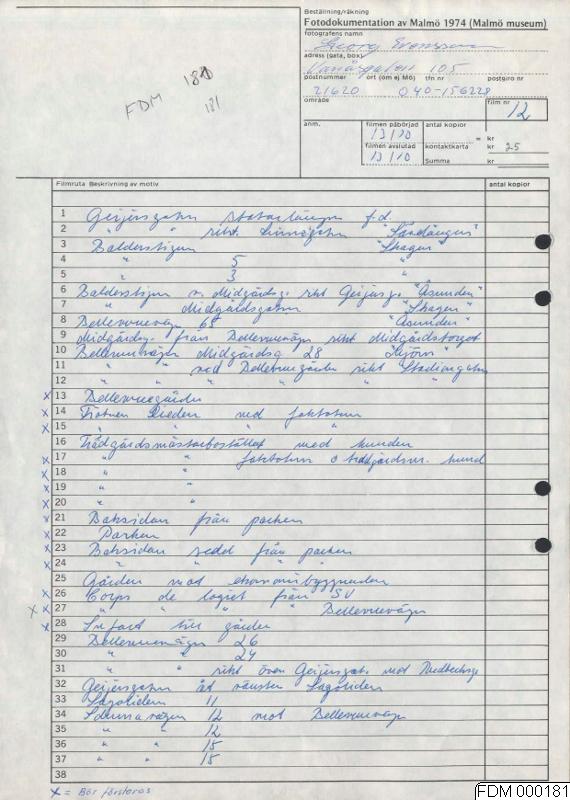 Beställning/räkning
Fotodokumentation av Malmö 1974 (Malmö museum)
fotografens namn
Georg Svensson
adress (gata, box)
105
postnummer ort (om ej Mö) tfn nr postgiro nr
21620 040-156228
område film nr
12
anm. filmen påbörjad antal kopior
13/10 = kr
filmen avslutad kontaktkarta kr 25
13/10 Summa kr
FDM 181
181
Filmruta Beskrivning av motiv antal kopior
1 Geijersgatan f.d.
2 " " rikt. Linnégatan
3 Balderstigen "Skagen"
4 " 5 "
5 " 3 "
6 Balderstigen Midgårdsg. rikt Geijersg. "Åsunden"
7 " Midgårdsgatan "Skagen"
8 Bellevuevägen 68 "Åsunden"
9 Midgårdsg. från Bellevuevägen rikt Midgårdstorget
10 Bellevuevägen Midgårdsg 28
11 " " vid Bellevuegården rikt Stadiongatan
12 " " " " " "
x 13 Bellevuegården
x 14 vid
x 15 " " " "
16 Trädgårdsmästarbostället med hunden
x 17 " " o trädgårdsm. hund
x 18 " "
x 19 " "
x 20 " "
x 21 Baksidan från parken
x 22 Parken
x 23 Baksidan sedd från parken
x 24 " " " "
25 Gården mot ekonomibyggnaden
x 26 Corps de logiet från SV
x x 27 " " " " " Bellevuevägen
x 28 Infart till gården
29 Bellevuevägen 26
30 " 24
31 " " rikt över Geijersgat. mot
32 Geijersgatan åt vänster Sagostigen
33 Sagostigen 11
34 12 mot Bellevuevägen
35 " " 12
36 " " 15
37 " " 15
38
x = Bör förstoras
FDM 000181